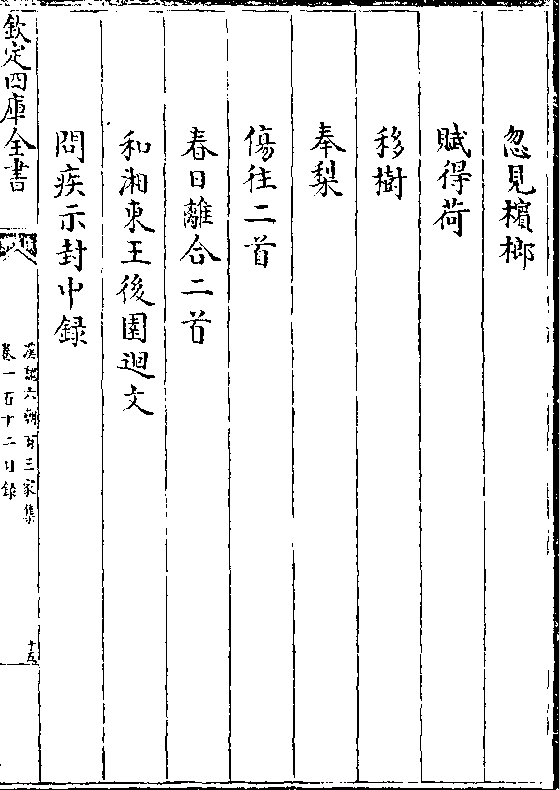 忽見檳榔
賦得荷
移樹
奉梨
傷往二首
春日離合二首
和湘東王後園迴文
問疾示封中録
欽定四庫全書
漢魏六朝百三家集
卷一百十二目錄
十五